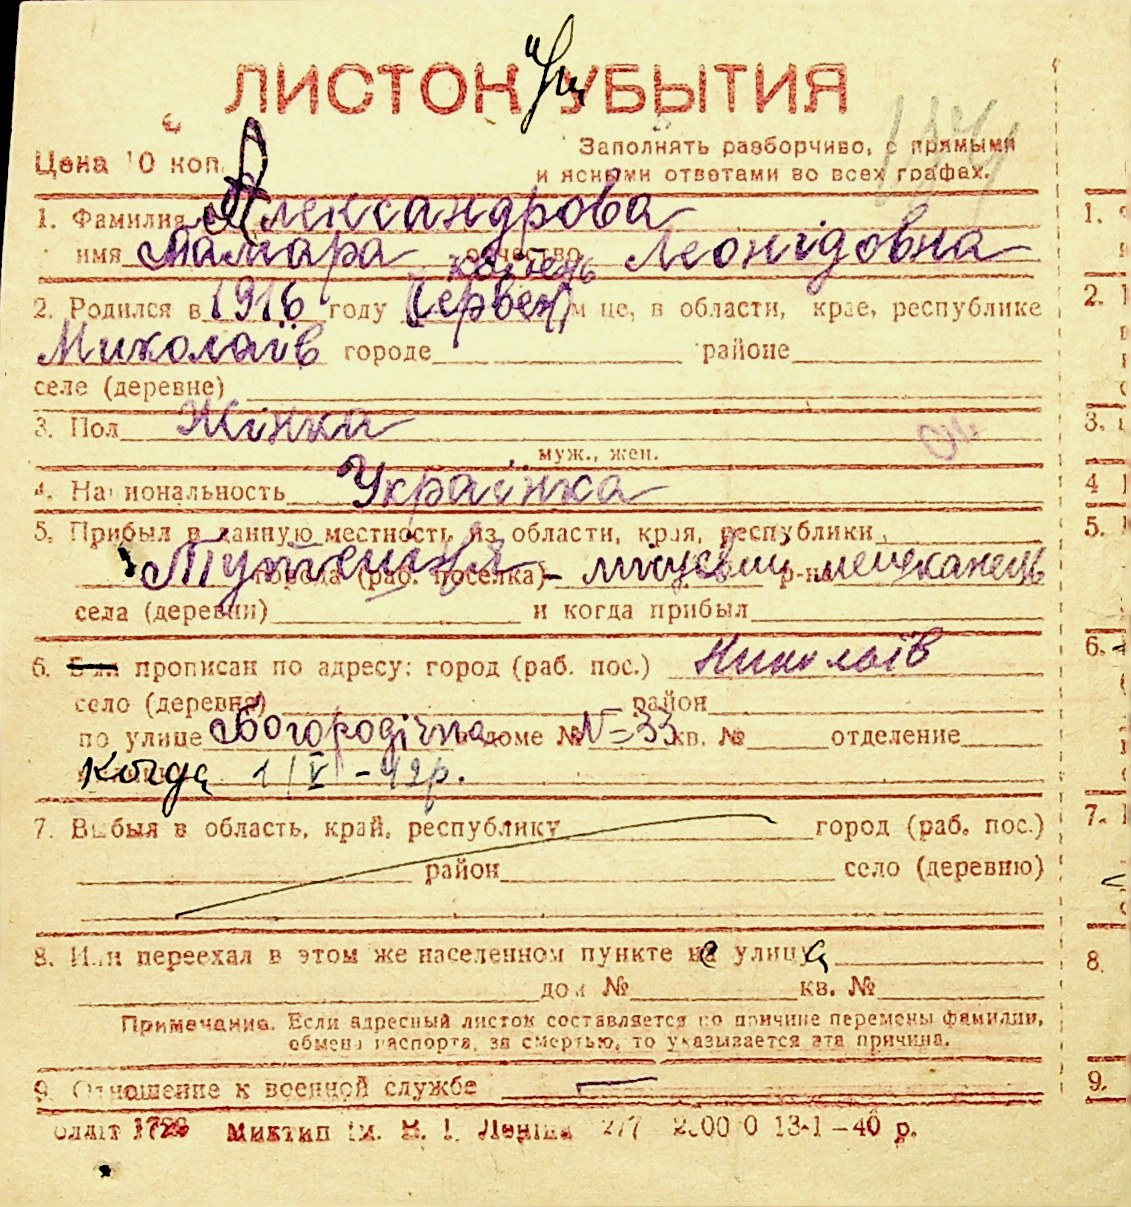 ЛИСТОК УБЫТИЯ
Цена 10 коп.
Заполнять разборчиво, с прямыми
и ясными ответами во всех графах.
1. Фамилия Александрова
имя Тамара отчество Леонідовна
квітень
2. Родился в 1916 году (червен) м-це, в области, крае, республике
Миколаїв городе районе
селе (деревне)
3. Пол Жінка
муж., жен.
4. Национальность Українка
5. Прибыл в данную местность из области, края, республики
города (раб. поселка) - р-на мешканець
села (деревни) и когда прибыл
6. Был прописан по адресу: город (раб. пос.) Николаїв
село (деревня) район
по улице Богородічна в доме № N=33 кв. № отделение
Когда 1/V - 42р.
7. Выбыл в область, край, республику город (раб. пос.)
район село (деревню)
8. Или переехал в этом же населенном пункте с улицы
дом № кв. №
Примечание. Если адресный листок составляется по причине перемены фамилии,
обмена паспорта, за смертью, то указывается эта причина.
9. Отношение к военной службе —
Миктип ім. В. І. Леніна 277 13-1-40 р.
1.
2.
3.
4
5.
6.
7.
8.
9.